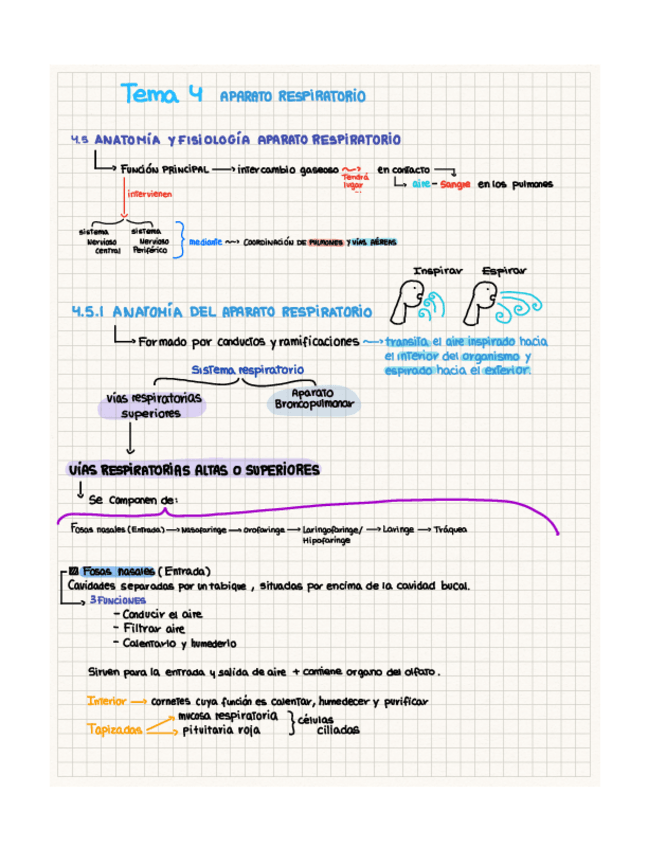 Tema 4 APARATO RESPIRATORIO
4.5 ANATOMÍA Y FISIOLOGÍA APARATO RESPIRATORIO
FUNCIÓN PRINCIPAL → intercambio gaseoso → Tendrá lugar en contacto
aire - sangre en los pulmones
intervienen
sistema Nervioso central
sistema Nervioso Periférico
mediante → COORDINACIÓN DE PULMONES Y VÍAS AÉREAS
Inspirar Espirar
4.5.1 ANATOMÍA DEL APARATO RESPIRATORIO
Formado por conductos y ramificaciones → transita el aire inspirado hacia
el interior del organismo y
espirado hacia el exterior.
Sistema respiratorio
vías respiratorias
superiores
Aparato
Broncopulmonar
VÍAS RESPIRATORIAS ALTAS O SUPERIORES
Se componen de:
Fosas nasales (Entrada) → Nasofaringe → Orofaringe → Laringofaringe/ → Laringe → Tráquea
Hipofaringe
Fosas nasales (Entrada)
Cavidades separadas por un tabique, situadas por encima de la cavidad bucal.
3 FUNCIONES
- Conducir el aire
- Filtrar aire
- Calentarlo y humederlo
Sirven para la entrada y salida de aire + contiene organo del olfato.
Interior → cornetes cuya función es calentar, humedecer y purificar
Tapizadas
mucosa respiratoria
pituitaria roja
células
ciliadas